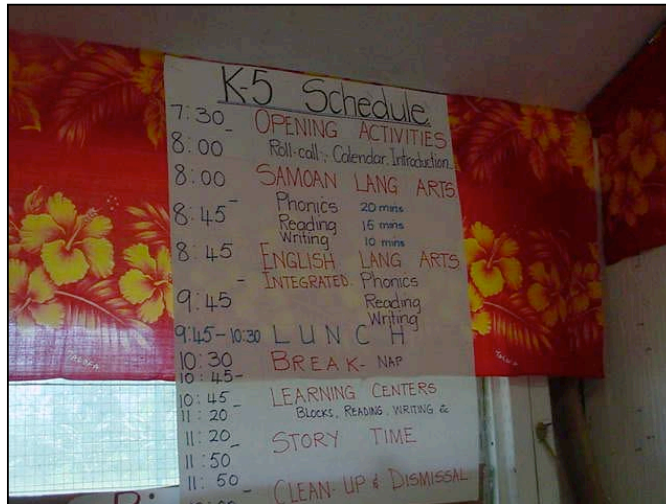 K-5 Schedule
7:30 - OPENING ACTIVITIES
8:00 Roll-call, Calendar, Introduction
8:00 - SAMOAN LANG ARTS
Phonics 20 mins
8:45 Reading 15 mins
Writing 10 mins
8:45 - ENGLISH LANG ARTS
INTEGRATED Phonics
9:45 Reading
Writing
9:45-10:30 LUNCH
10:30 BREAK- NAP
10:45-
10:45 - LEARNING CENTERS
11:20 BLOCKS, READING, WRITING &
11:20 - STORY TIME
11:50
11:50 - CLEAN-UP & DISMISSAL
TALOFA